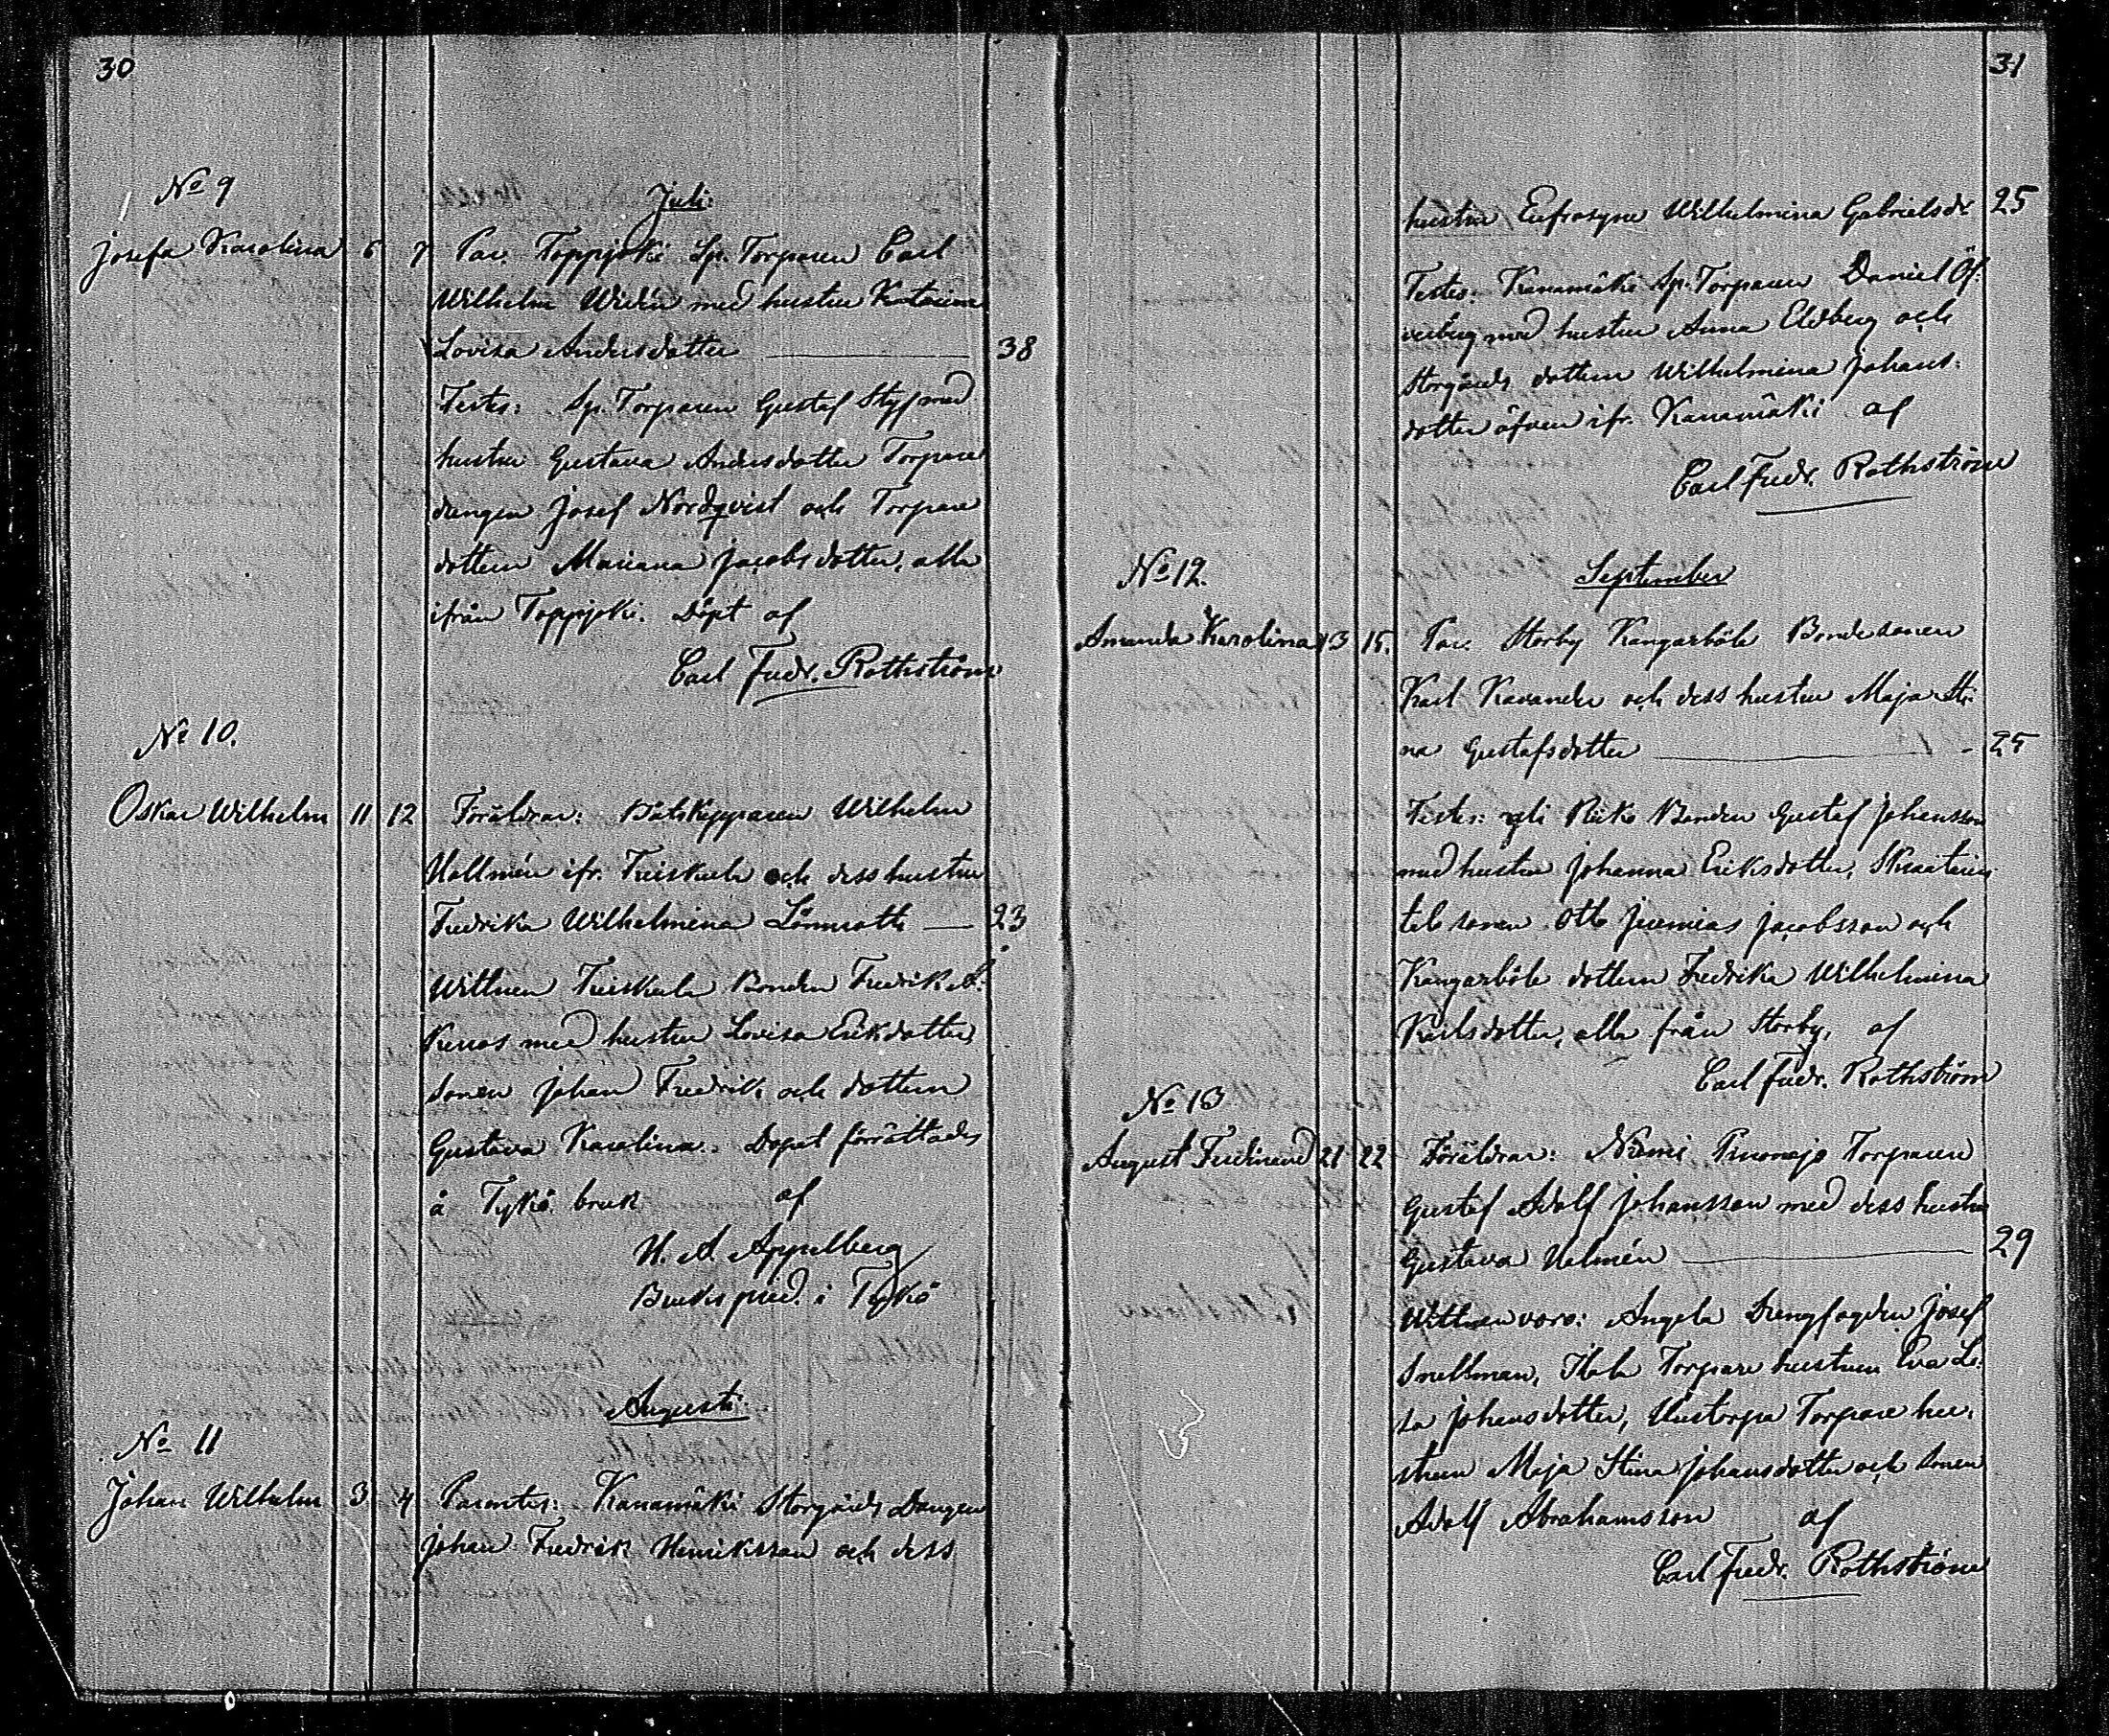 30
No 9
Juli.
Josefa Karolina 6 7 Par. Toppjoki Sp. Torparen Carl
Wilhelm Widén med hustru Katarina
Lovisa Andersdotter 38
Testes: Sp. Torparen Gustaf Styf med
hustru Gustava Andersdotter Torpare
drengen Josef Nordqvist och Torpare
dottern Mariana Jacobsdotter, alla
ifrån Toppjoki. Döpt af
Carl Fredr. Rothström
No 10.
Oskar Wilhelm 11 12 Föräldrar: Båtskepparen Wilhelm
Hallmén ifr. Treiskula och dess hustru
Fredrika Wilhelmina Lönnroth 23
Wittnen Treiskula Bonden Fredrik
med hustru Lovisa Erikdotter,
sonen Johan Fredrik och dottern
Gustava Karolina. Dopet förrättades
å Tykö bruk af
H. A. Appelberg
Brukspred. i Tykö
Augusti.
No 11
Johan Wilhelm 3 4 Parentes: Kanamäki Storgårds Drengen
Johan Fredrik Henriksson och dess
31
hustru Eufrosyne Wilhelmina Gabrielsdr 25
Testes: Kanamäki Sp. Torparen Daniel Öf:
verberg med hustru Anna Eldberg och
Storgårds dottern Wilhelmina Johans-
dotter äfven ifr. Kanamäki af
Carl Fredr. Rothström
No 12.
September
Amanda Karolina 13 15. Par. Storby Kangarböle Bondesonen
Karl Kavander och dess hustru Maja Sti-
na Gustafsdotter 25
Testes: Yli Bonden Gustaf Johansson
med hustru Johanna Eriksdotter,
sonen Otto Jeremias Jacobsson och
Kangarböle dottern Fredrika Wilhelmina
Karlsdotter, alla från Storby, af
Carl Fredr. Rothström
No 13
August Ferdinand 21 22 Föräldrar: Niemi Torparen
Gustaf Adolf Johansson med dess hustru
Gustava Helmén 29
Wittnen voro: Angela Drengfogden Josef
Snellman, Torpare hustrun Eva Lo:
sa Johansdotter, Torpare hu-
strun Maja Stina Johansdotter och sonen
Adolf Abrahamsson af
Carl Fredr. Rothström